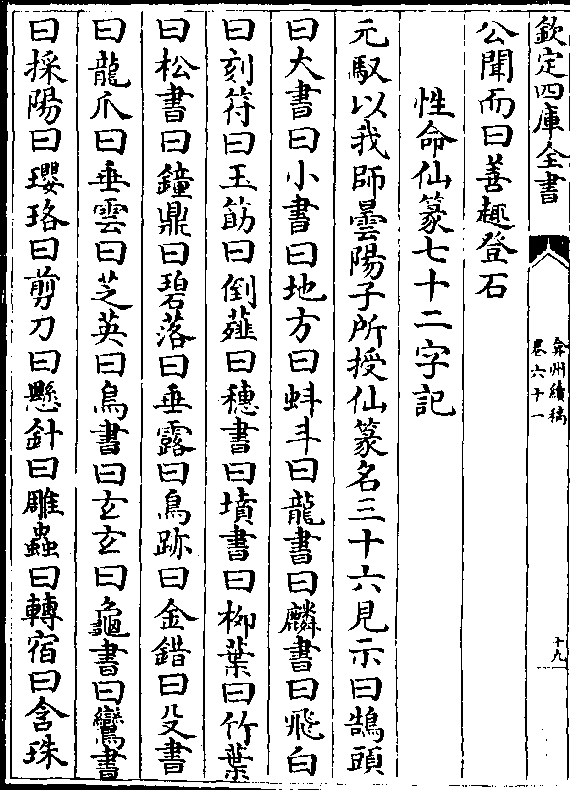 欽定四庫全書
弇州續稿
卷六十一
十九
公聞而曰善趣登石
性命仙篆七十二字記
元馭以我師曇陽子所授仙篆名三十六見示曰鵠頭
曰大書曰小書曰地方曰蚪斗曰龍書曰麟書曰飛白
曰刻符曰玉筯曰倒薤曰穗書曰墳書曰柳葉曰竹葉
曰松書曰鐘鼎曰碧落曰垂露曰鳥跡曰金錯曰殳書
曰龍爪曰垂雲曰芝英曰鳥書曰玄玄曰龜書曰鸞書
曰採陽曰瓔珞曰剪刀曰懸針曰雕蟲曰轉宿曰含珠